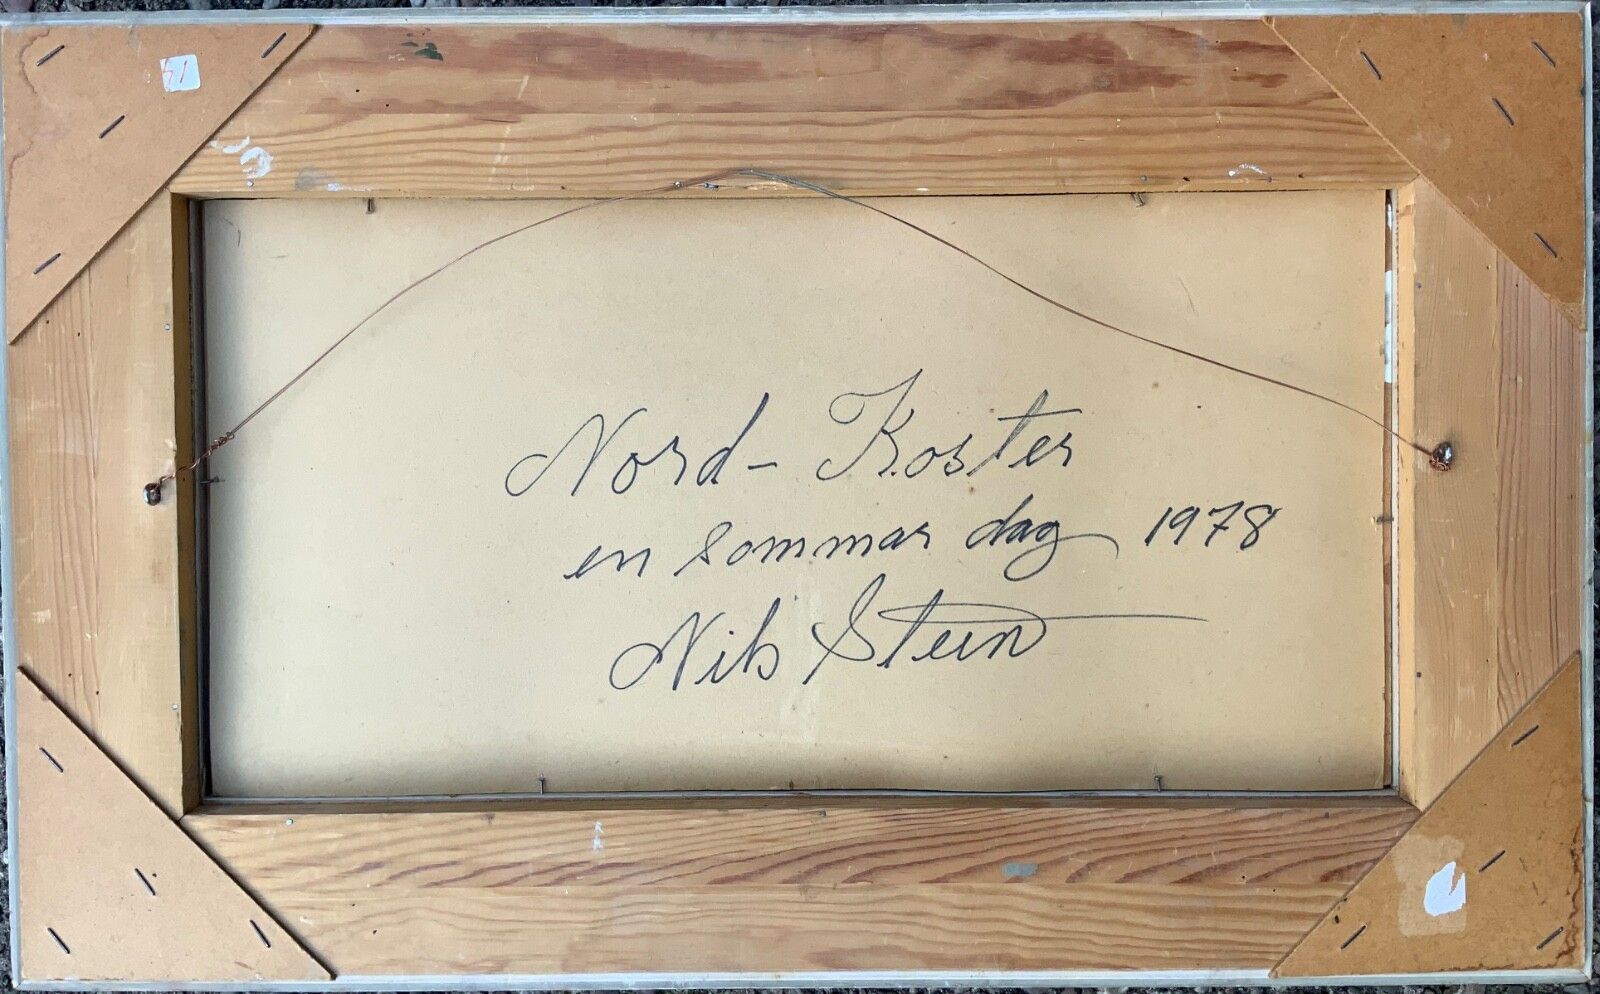 Nord-Koster
en sommar dag 1978
Nils Steen